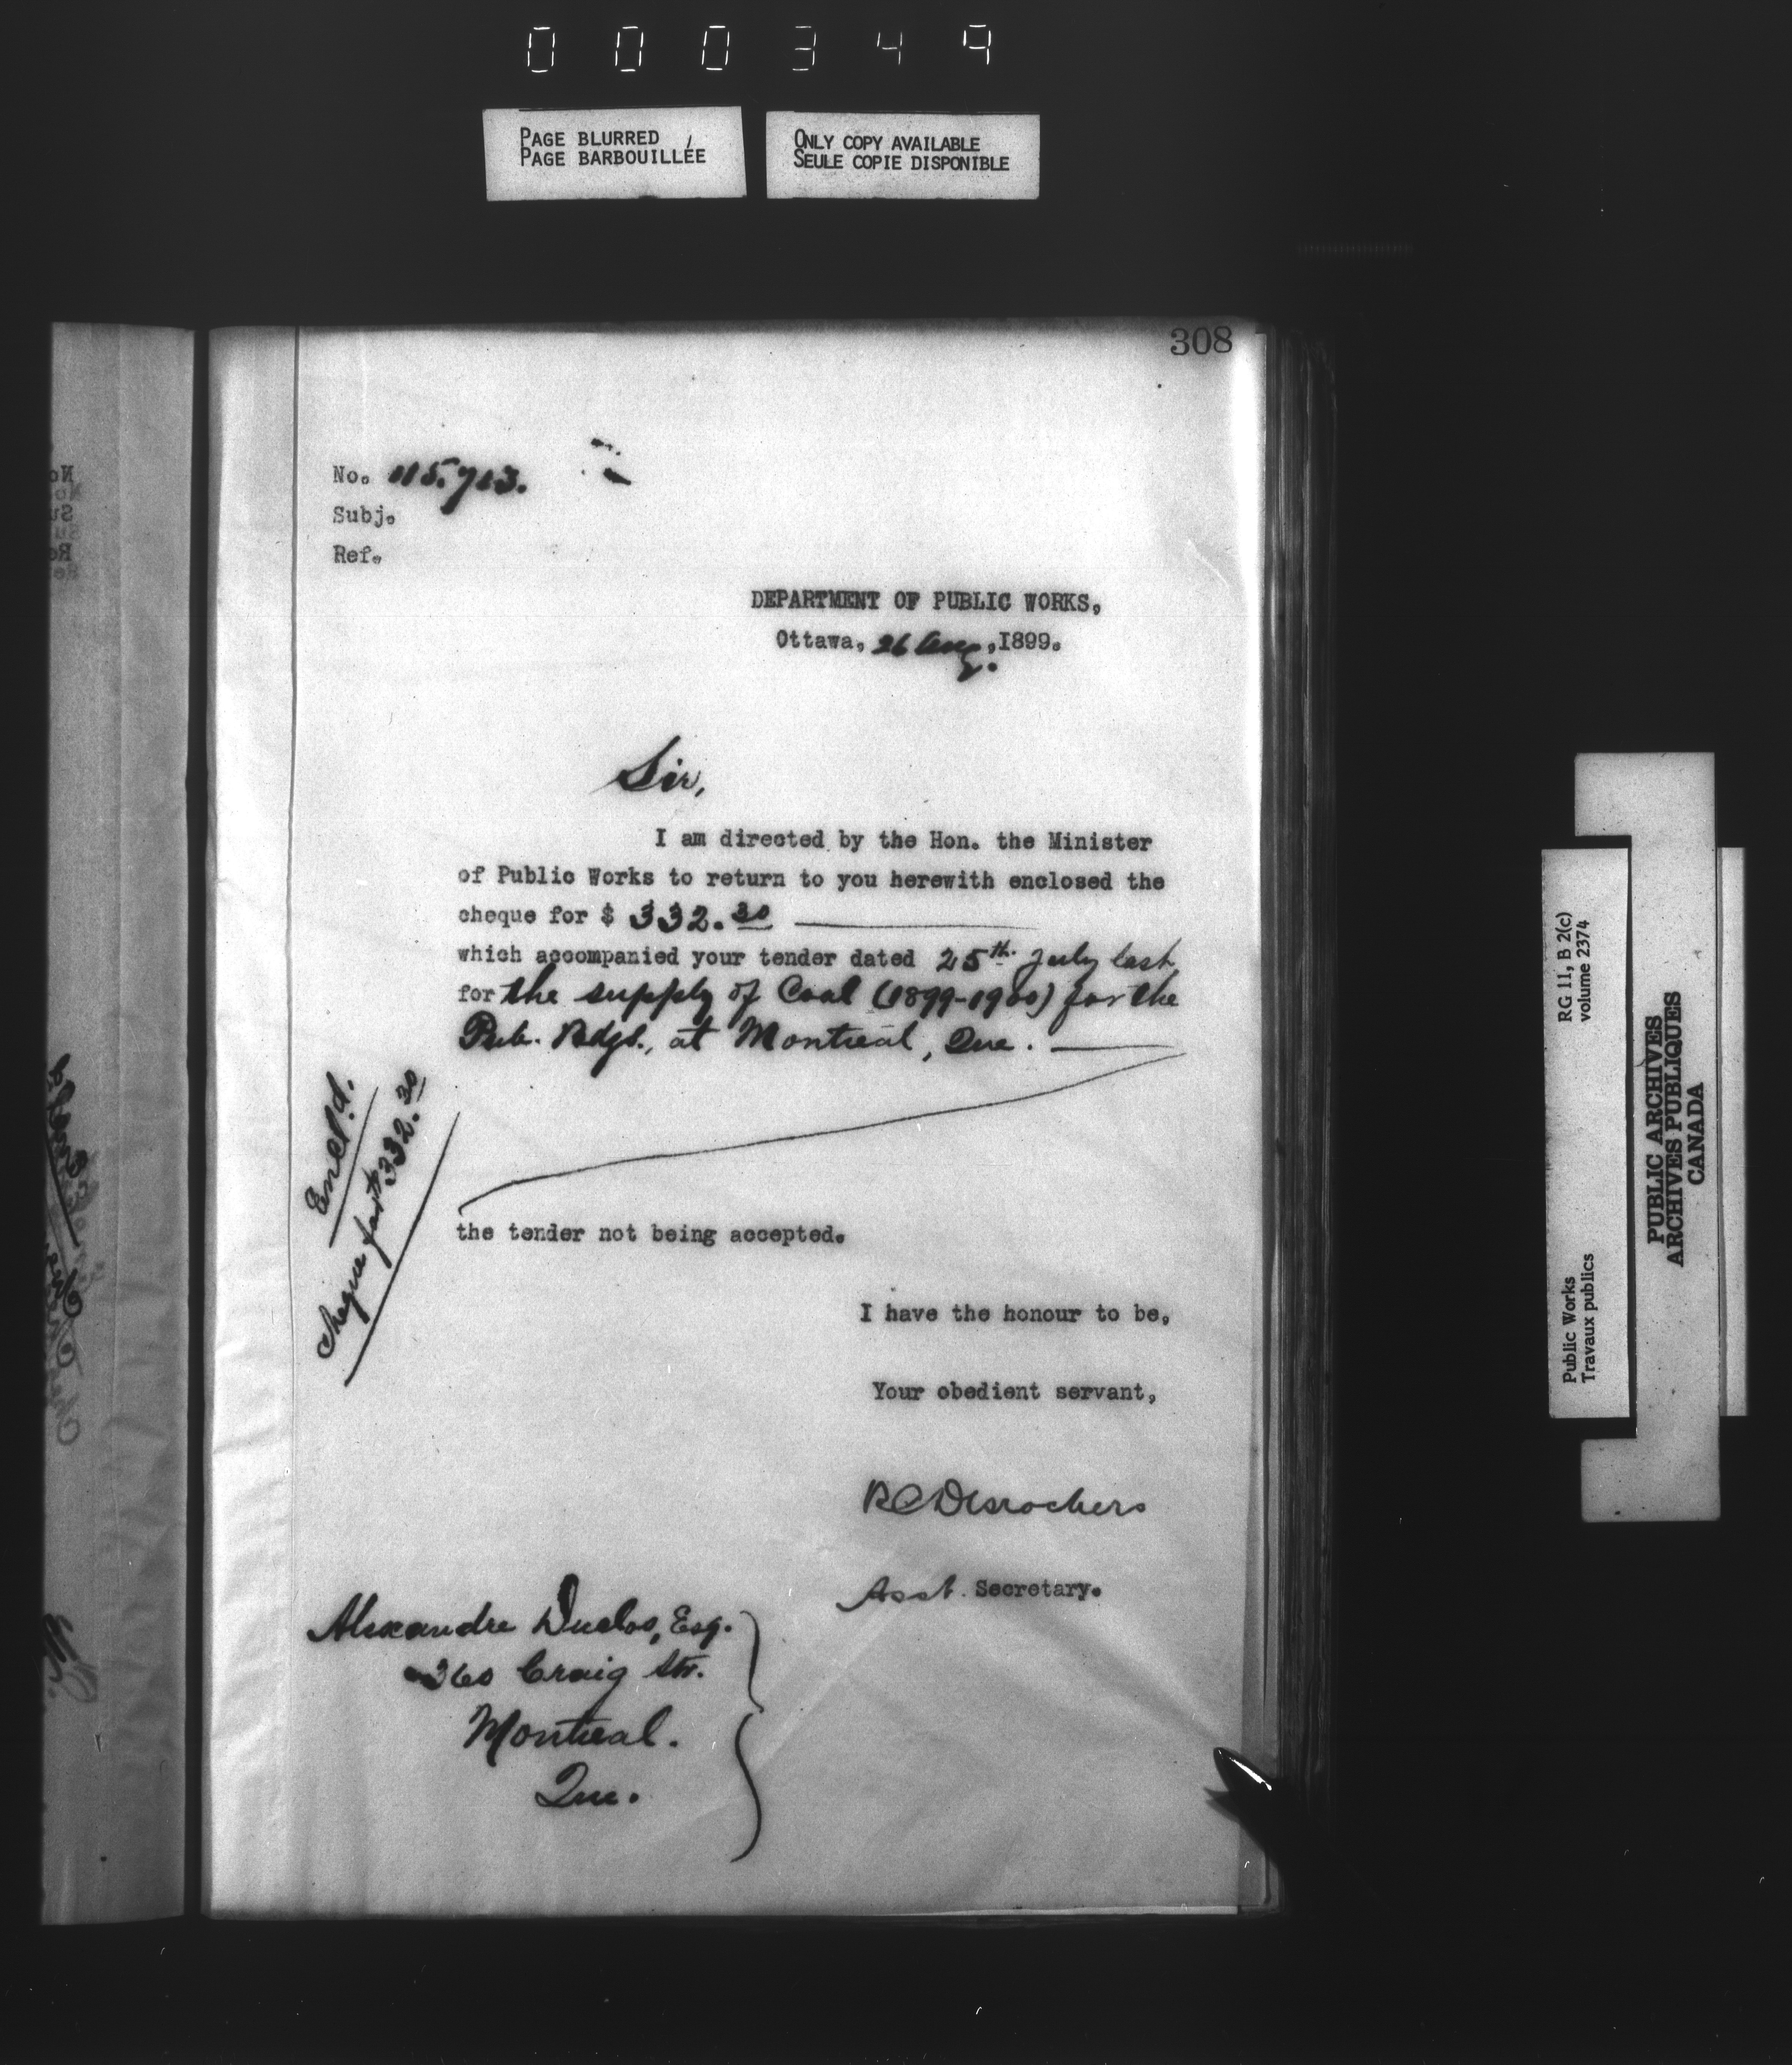 000349
PAGE BLURRED
PAGE BARBOUILLÉE
ONLY COPY AVAILABLE
SEULE COPIE DISPONIBLE
308
No. 115.713.
Subj.
Ref.
DEPARTMENT OF PUBLIC WORKS,
Ottawa, 26 Aug., 1899.
Sir,
I am directed by the Hon. the Minister
of Public Works to return to you herewith enclosed the
cheque for $ 332.30
which accompanied your tender dated 25th July last
for the supply of Coal (1899-1900) for the
Pub. Bdgs., at Montreal, Que.
Encl'd.
cheque for $332.30
the tender not being accepted.
I have the honour to be,
Your obedient servant,
RC Desrochers
Asst. Secretary.
Alexandre Duclos, Esq.
360 Craig Str.
Montreal.
Que.
RG 11, B 2(c)
volume 2374
Public Works
Travaux publics
PUBLIC ARCHIVES
ARCHIVES PUBLIQUES
CANADA